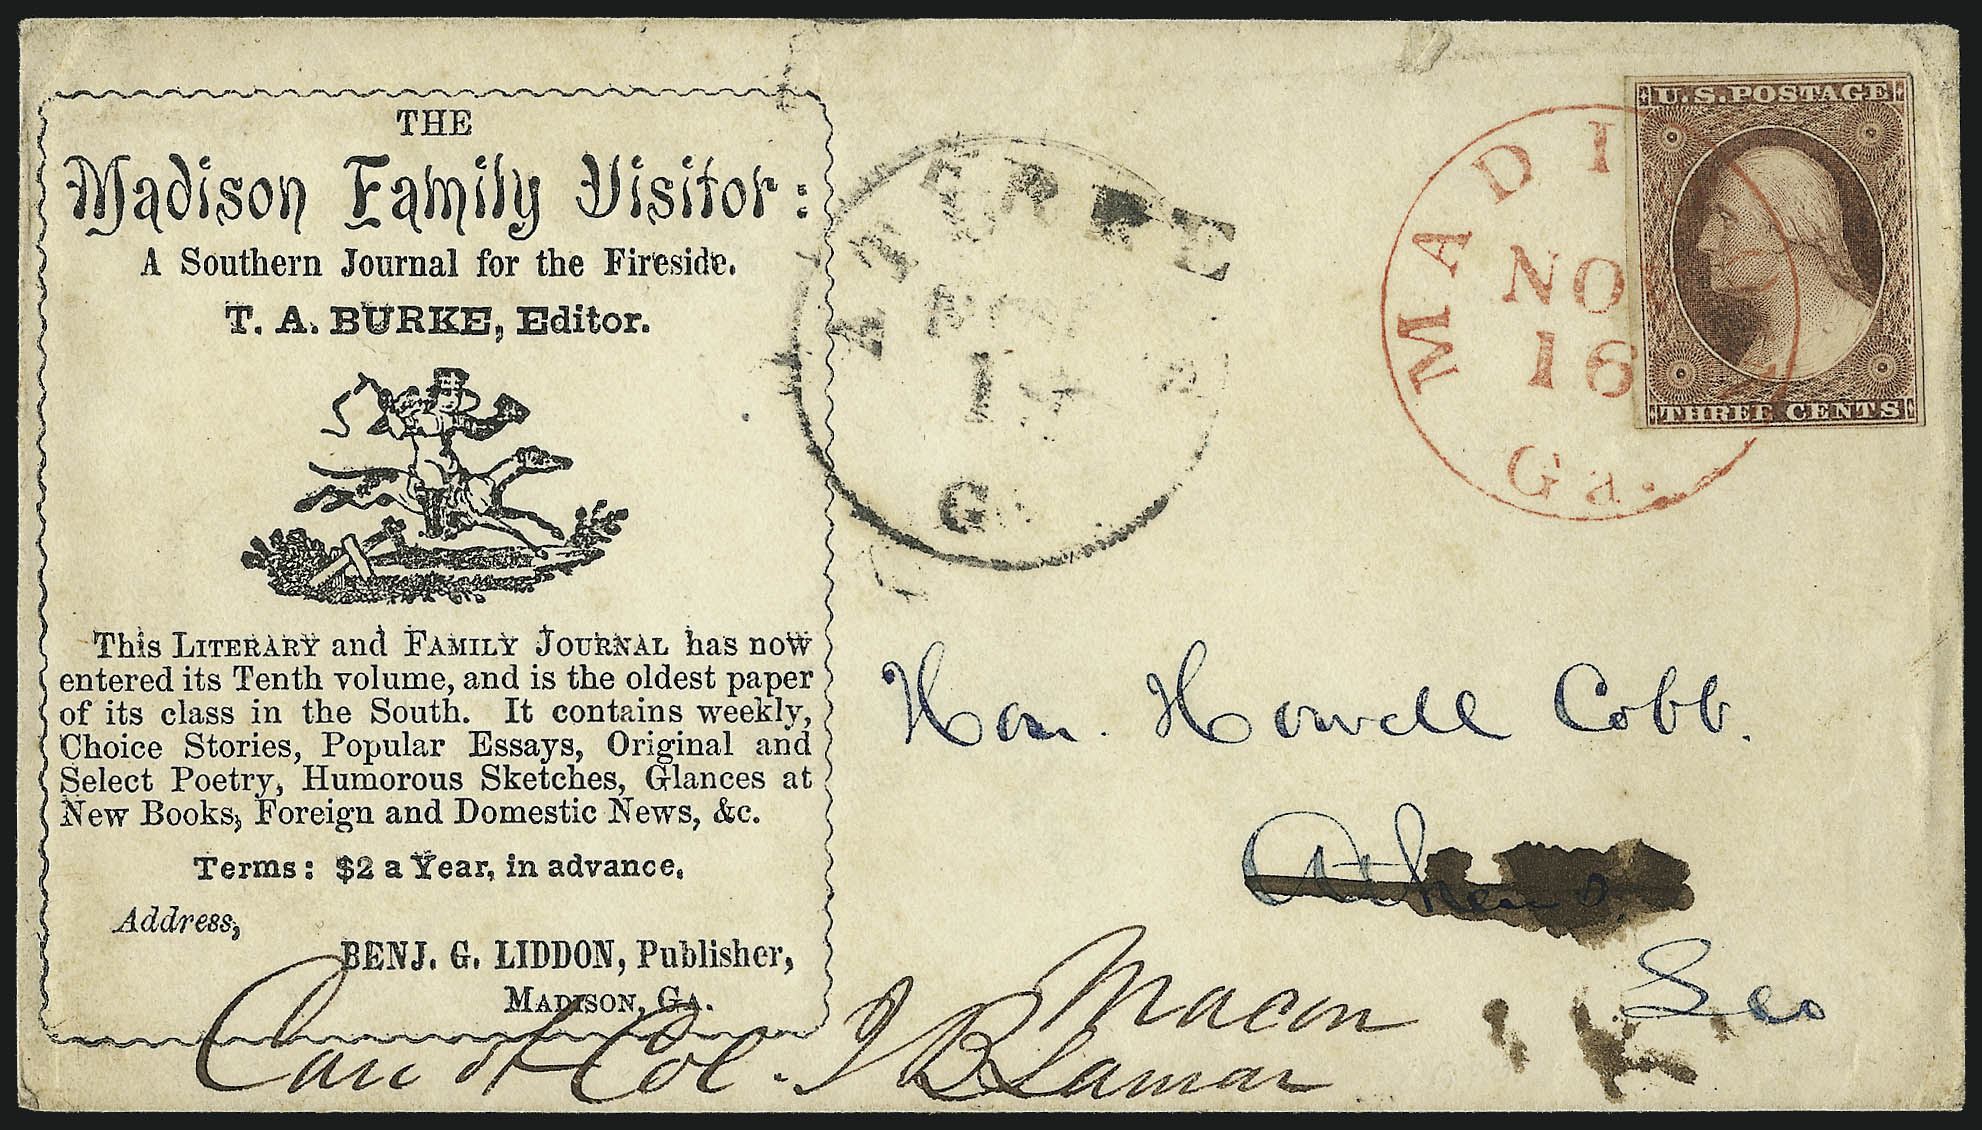 THE
Madison Family Visitor:
A Southern Journal for the Fireside.
T. A. BURKE, Editor.
This LITERARY and FAMILY JOURNAL has now
entered its Tenth volume, and is the oldest paper
of its class in the South. It contains weekly,
Choice Stories, Popular Essays, Original and
Select Poetry, Humorous Sketches, Glances at
New Books, Foreign and Domestic News, &c.
Terms: $2 a Year, in advance.
Address,
BENJ. G. LIDDON, Publisher,
MADISON, GA.
U.S. POSTAGE
THREE CENTS
MADI
NO
16
Ga.
Hon. Howell Cobb.
Athens.
Geo
Macon
Care of Col. J B Lamar